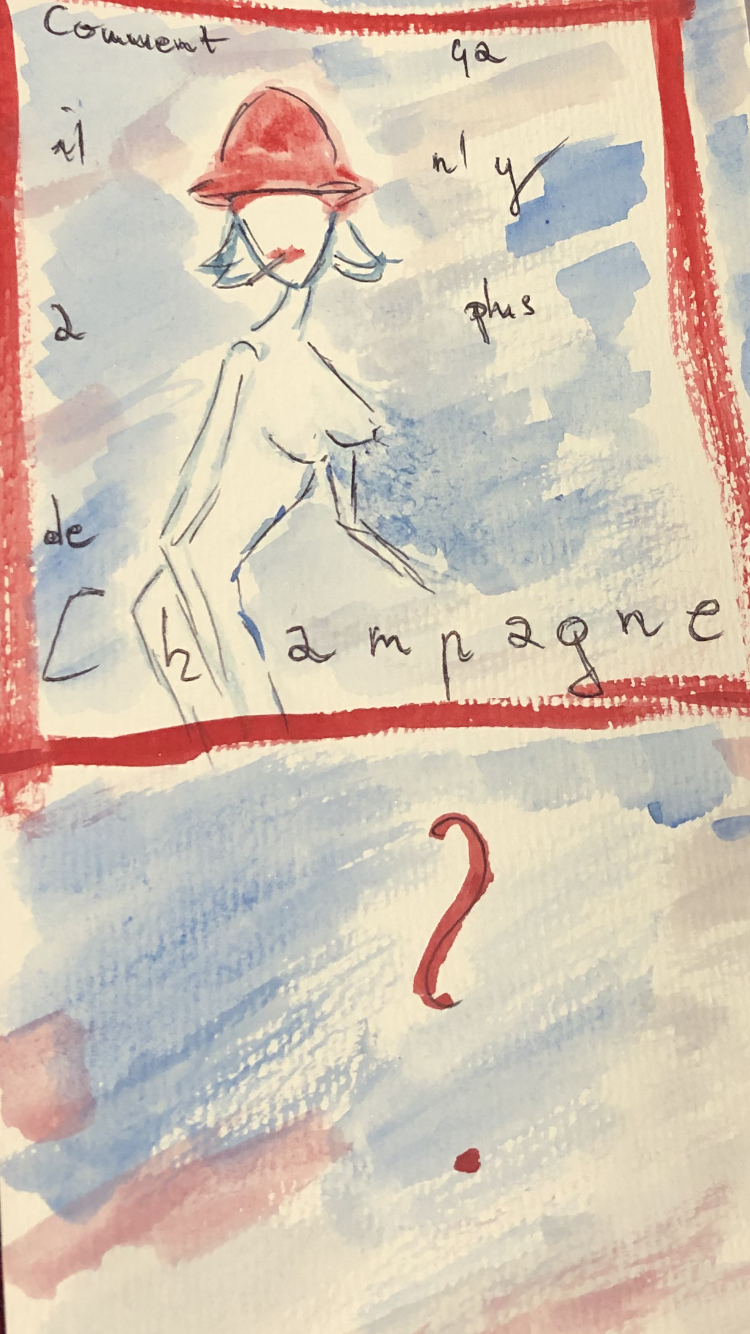 Comment ça
il n'y
a plus
de
Champagne
?